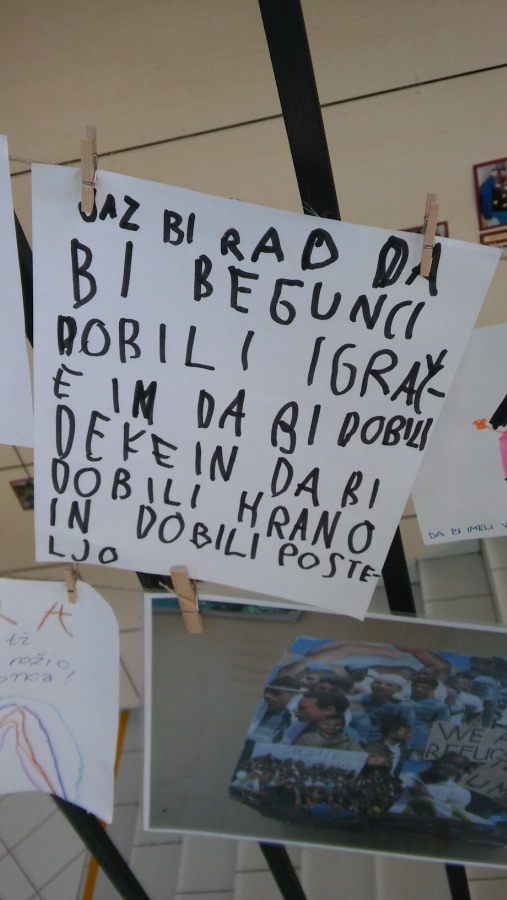 JAZ BI RAD DA
BI BEGUNCI
DOBILI IGRAČ-
E IN DA BI DOBILI
DEKE IN DA BI
DOBILI HRANO
IN DOBILI POSTE-
LJO
DA BI IMELI
RA
ti
rožic
WE A
REFUG